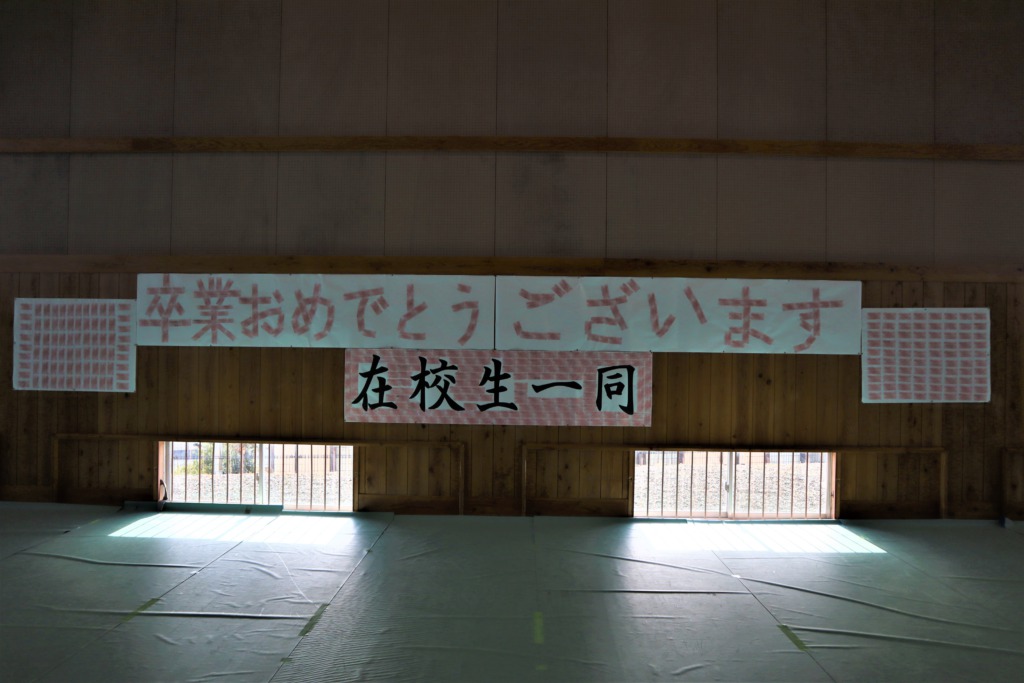 卒業おめでとうございます
在校生一同